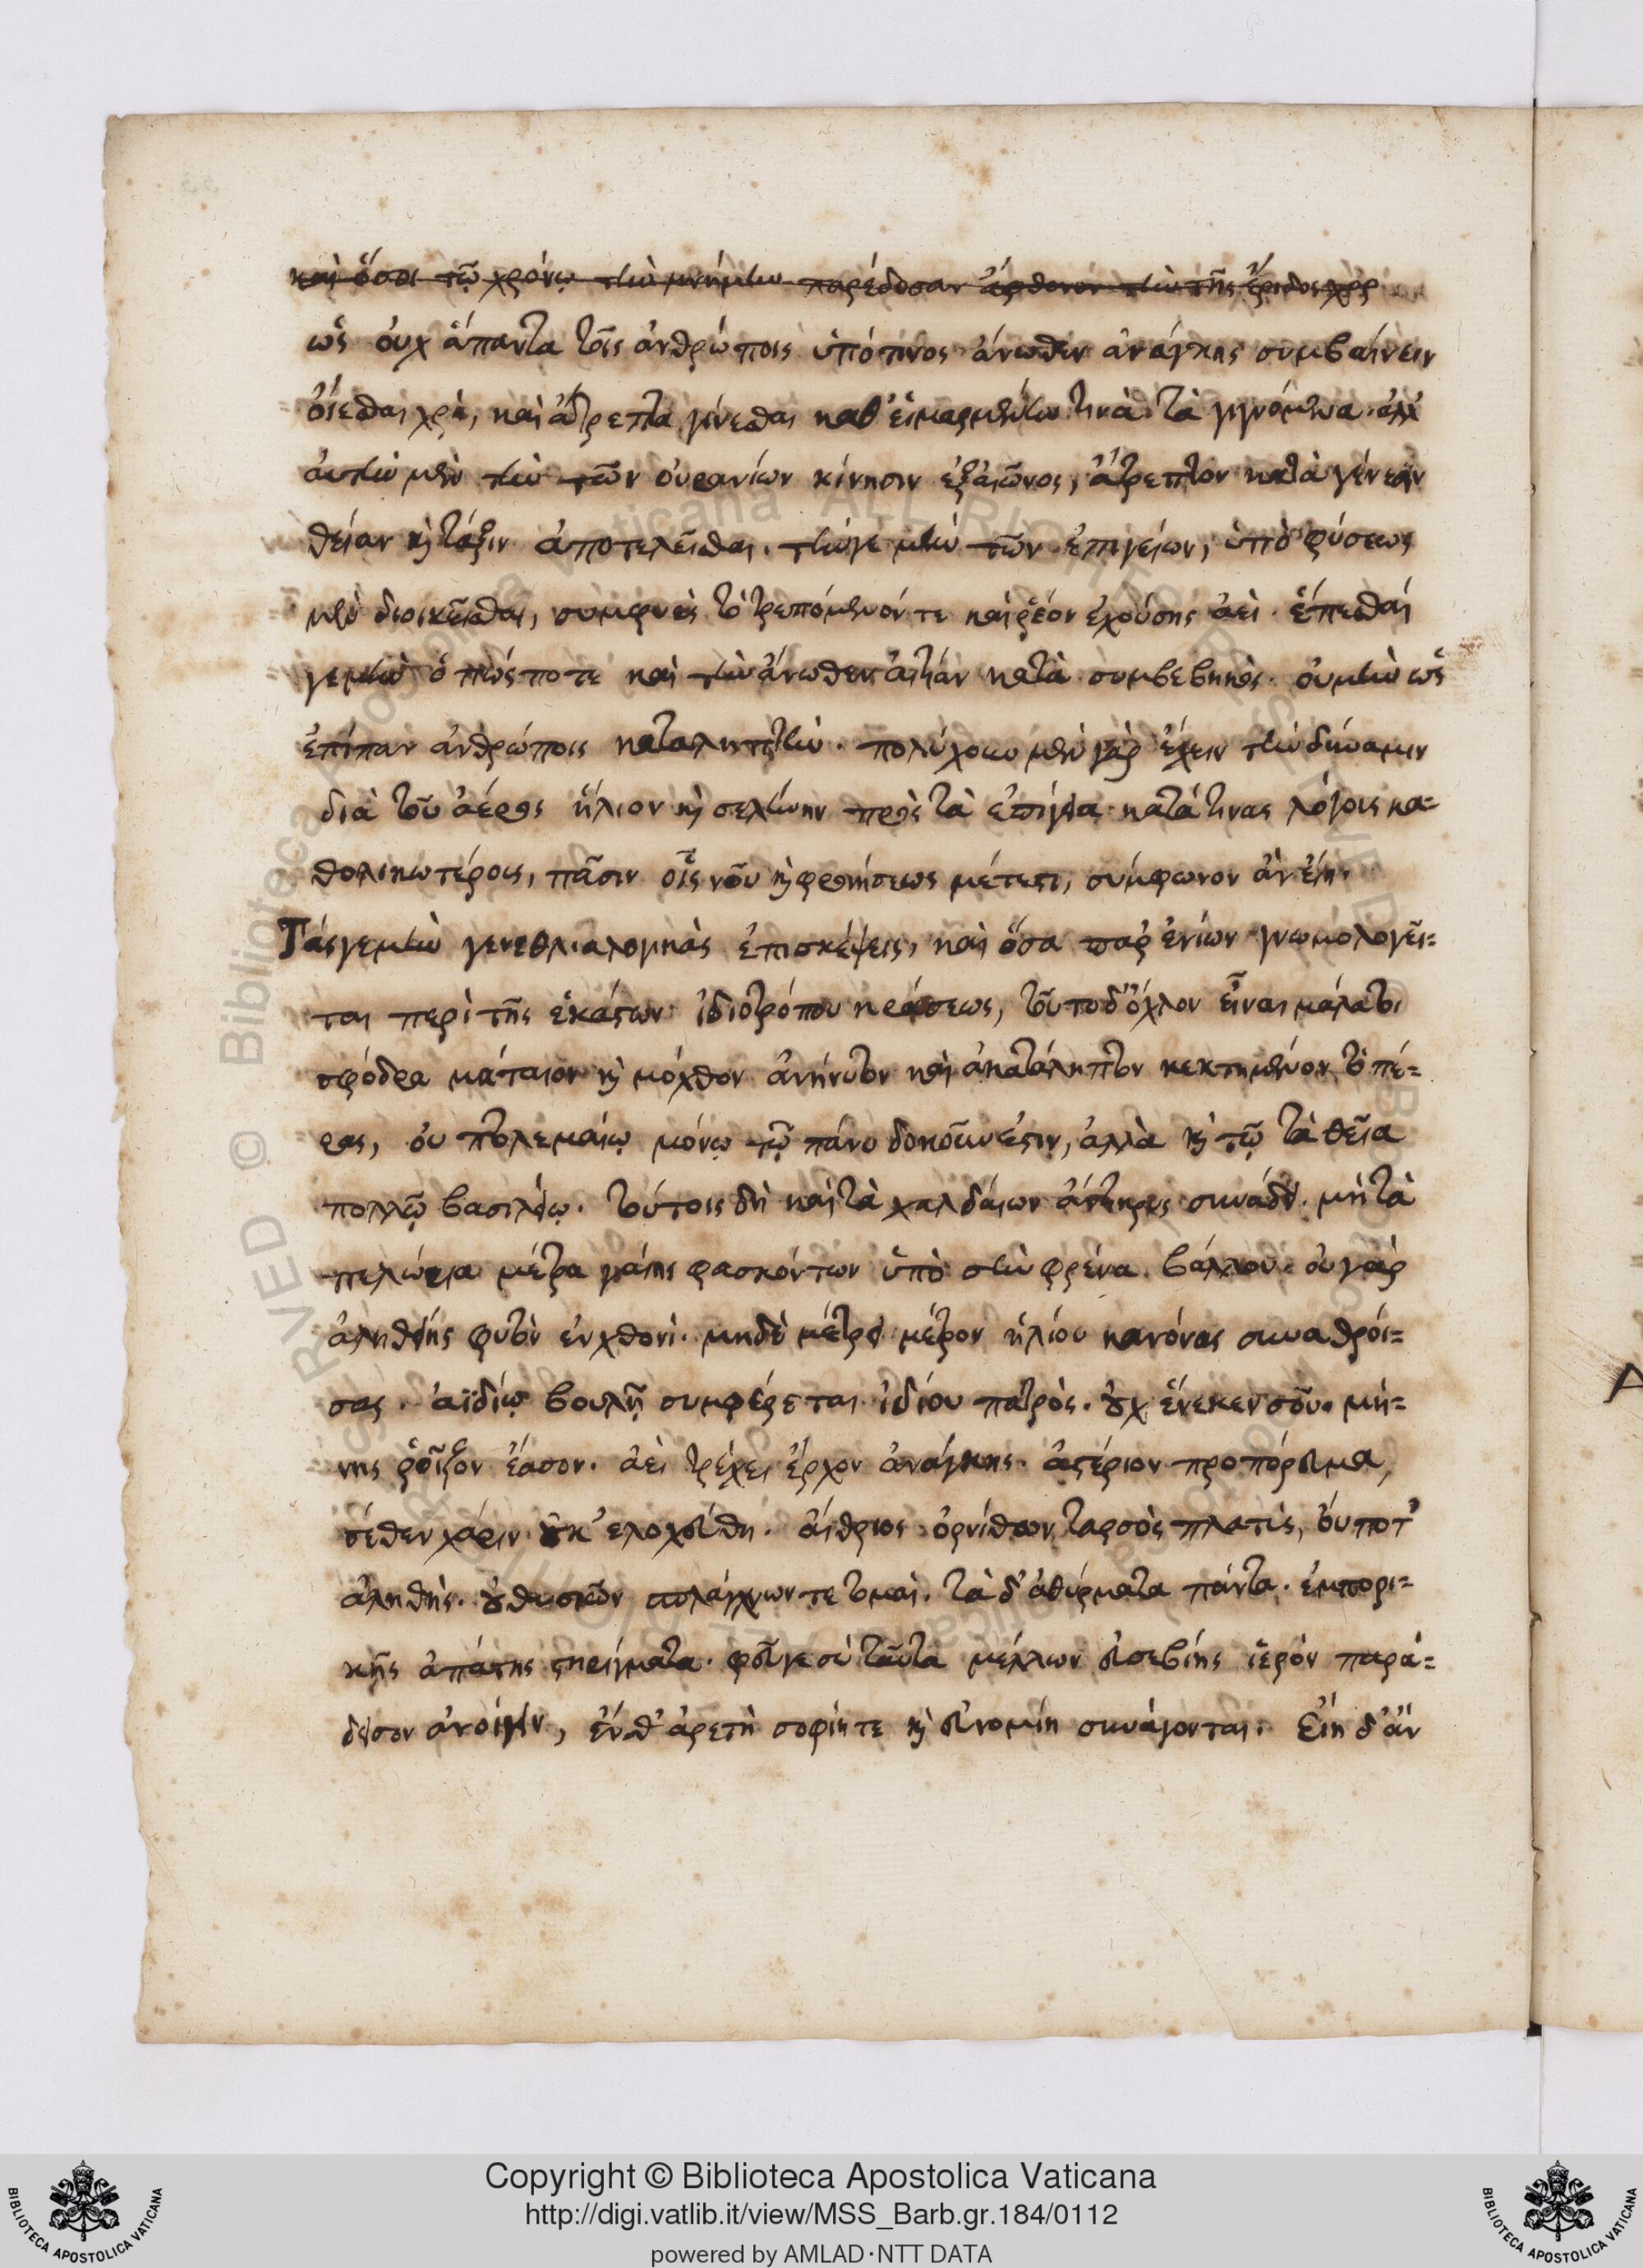 καὶ ὅσοι τῷ χρόνῳ τὴν μνήμην παρέδοσαν ἄφθονον τὴν τῆς ἔριδος χορ
ὡς οὐχ ἅπαντα τοῖς ἀνθρώποις ὑπό τινος ἄνωθεν ἀνάγκης συμβαίνειν
οἴεσθαι χρὴ, καὶ ἄτρεπτα γίνεσθαι καθ' εἱμαρμένην τινὰ τὰ γιγνόμενα. ἀλλ'
αὐτὴν μὲν τὴν τῶν οὐρανίων κίνησιν ἐξ αἰῶνος, ἄτρεπτον κατὰ γένεσιν
θείαν καὶ τάξιν ἀποτελεῖσθαι. τήν γε μὴν τῶν ἐπιγείων, ὑπὸ φύσεως
μὲν διοικεῖσθαι, συμφυὲς τὸ τρεπόμενόν τε καὶ ῥέον ἐχούσης ἀεὶ. ἕπεσθαί
γε μὴν ὅπώς ποτε καὶ τὴν ἄνωθεν αἰτίαν κατὰ συμβεβηκὸς. οὐ μὴν ὡς
ἐπίπαν ἀνθρώποις καταληπτὴν. πολύχουν μὲν γὰρ ἔχειν τὴν δύναμιν
διὰ τοῦ ἀέρος ἥλιον καὶ σελήνην πρὸς τὰ ἐπίγεια κατά τινας λόγους κα=
θολικωτέρους, πᾶσιν οἷς νοῦ καὶ φρονήσεως μέτεστι, σύμφωνον ἂν εἴη.
Τάς γε μὴν γενεθλιαλογικὰς ἐπισκέψεις, καὶ ὅσα παρ' ἐνίων γνωμολογεῖ=
ται περὶ τῆς ἑκάστων ἰδιοτρόπου κράσεως, τοῦτο δ' ὄχλον εἶναι μάλα τοι
σφόδρα μάταιον καὶ μόχθον ἀνήνυτον καὶ ἀκατάληπτον κεκτημένον τὸ πέ=
ρας, οὐ πτολεμαίῳ μόνῳ τῷ πάνυ δοκοῦν ἐστιν, ἀλλὰ καὶ τῷ τὰ θεῖα
πολλῷ βασιλείῳ. τούτοις δὴ καὶ τὰ χαλδαίων ἄντικρυς συνάδει. μὴ τὰ
πελώρια μέτρα γαίης φασκόντων ὑπὸ σὴν φρένα βάλλου. οὐ γὰρ
ἀληθείης φυτὸν ἐν χθονὶ. μηδὲ μέτρει μέτρον ἡλίου κανόνας συναθροί=
σας. ἀϊδίῳ βουλῇ συμφέρεται ἰδίου πατρὸς. οὐχ ἕνεκεν σοῦ. μή=
νης ῥοῖζον ἔασον. ἀεὶ τρέχει ἔργον ἀνάγκης. ἀστέριον προπόρευμα,
σέθεν χάριν οὐκ ἐλοχεύθη. αἴθριος ὀρνίθων ταρσὸς πλατὺς, οὔποτ'
ἀληθὴς. οὐ θυσιῶν σπλάγχνων τε τομαὶ. τὰ δ' ἀθύρματα πάντα. ἐμπορι=
κῆς ἀπάτης στηρίγματα. φεῦγε σὺ ταῦτα μέλλων εὐσεβίης ἱερὸν παρά=
δεισον ἀνοίγειν, ἔνθ' ἀρετὴ σοφίη τε καὶ εὐνομίη συνάγονται. Εἴη δ' ἂν
Copyright © Biblioteca Apostolica Vaticana
http://digi.vatlib.it/view/MSS_Barb.gr.184/0112
powered by AMLAD·NTT DATA